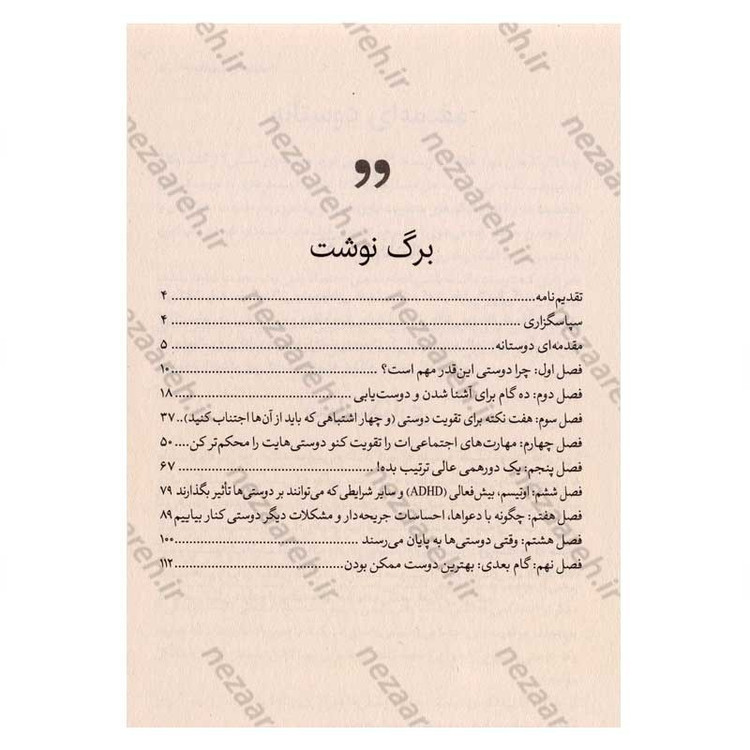 برگ نوشت
تقدیم‌نامه ........ ۴
سپاسگزاری ........ ۴
مقدمه‌ای دوستانه ........ ۵
فصل اول: چرا دوستی این‌قدر مهم است؟ ........ ۱۰
فصل دوم: ده گام برای آشنا شدن و دوست‌یابی ........ ۱۸
فصل سوم: هفت نکته برای تقویت دوستی (و چهار اشتباهی که باید از آن‌ها اجتناب کنید).. ۳۷
فصل چهارم: مهارت‌های اجتماعی‌ات را تقویت کنو دوستی‌هایت را محکم‌تر کن.... ۵۰
فصل پنجم: یک دورهمی عالی ترتیب بده! ........ ۶۷
فصل ششم: اوتیسم، بیش‌فعالی (ADHD) و سایر شرایطی که می‌توانند بر دوستی‌ها تأثیر بگذارند ۷۹
فصل هفتم: چگونه با دعواها، احساسات جریحه‌دار و مشکلات دیگر دوستی کنار بیاییم ۸۹
فصل هشتم: وقتی دوستی‌ها به پایان می‌رسند ........ ۱۰۰
فصل نهم: گام بعدی: بهترین دوست ممکن بودن ........ ۱۱۲
nezaareh.ir